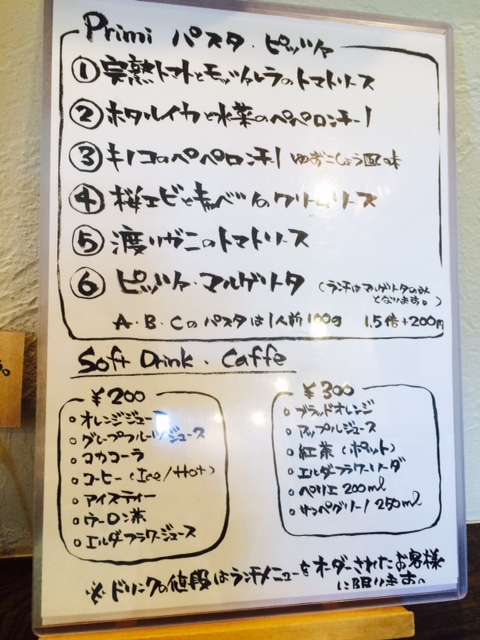 Primi パスタ・ピッツァ
① 完熟トマトとモッツァレラのトマトソース
② ホタルイカと水菜のペペロンチーノ
③ キノコのペペロンチーノ ゆずこしょう風味
④ 桜エビと春キャベツのクリームソース
⑤ 渡りガニのトマトソース
⑥ ピッツァ・マルゲリータ (ランチはマルゲリータのみ
となります。)
A・B・Cのパスタは1人前100g 1.5倍+200円
Soft Drink . Caffe
¥200
○オレンジジュース
○グレープフルーツジュース
○コカコーラ
○コーヒー(Ice/Hot)
○アイスティー
○ウーロン茶
○エルダフラワージュース
¥300
○ブラッドオレンジ
○アップルジュース
○紅茶(ポット)
○エルダフラワーソーダ
○ペリエ 200ml
○サンペグリーノ 250ml
※ドリンクの値段はランチメニューをオーダーされたお客様
に限ります。